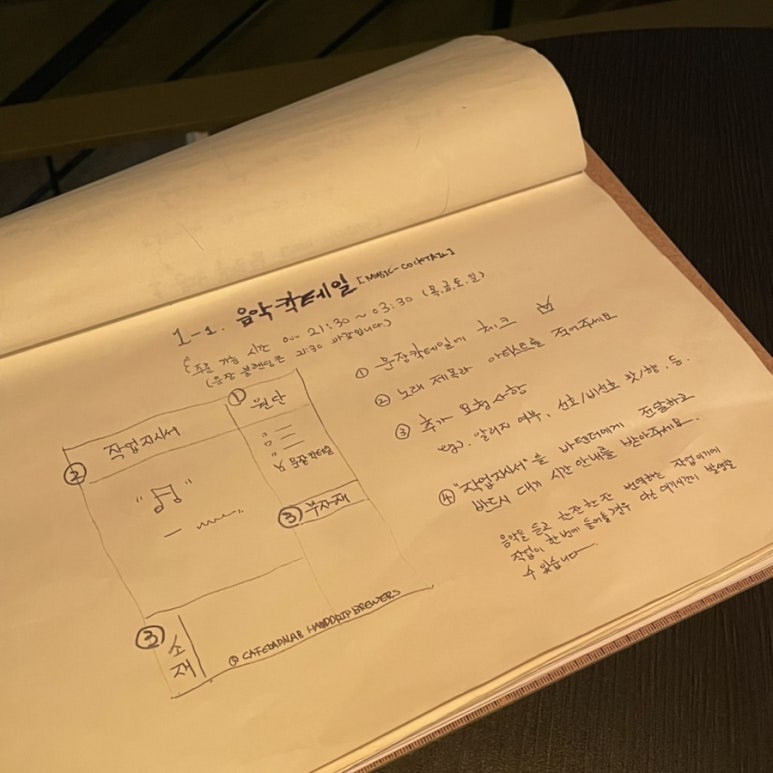 1-1. 음악칵테일 [MUSIC-COCKTAIL]
주문 가능 시간 21:30 ~ 03:30 (목,금,토,일)
(문장 블렌딩은 21:30 마감입니다.)
① 문장칵테일에 체크
② 노래 제목과 아티스트를 적어주세요
③ 추가 요청사항
ex). 알러지 여부, 선호/비선호 맛/향, 등.
④ "작업지시서"를 바텐더에게 전달하고
반드시 대기 시간 안내를 받아주세요.
음악을 듣고 한잔 한잔 번역하는 작업이기에
작업이 한번에 들어올 경우 다소 대기시간이 발생할
수 있습니다
작업지시서
① 원단
문장칵테일
②
③ 부자재
③ 소재
CAFE HANDDRIP BREWERS